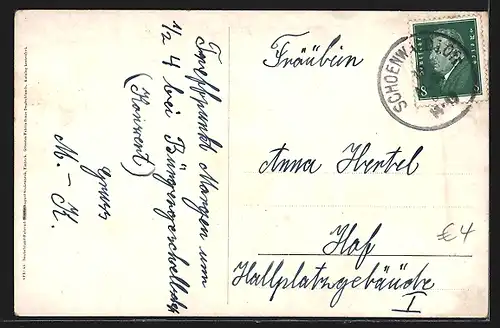 Treffpunkt Morgen um
1/2 4 bei Bürgergesellschaft
(Konvent)
Gruss
M.-K.
Fräulein
Anna Hertel
Hof
Hallplatzgebäude
I
SCHOENWALD
8
€4